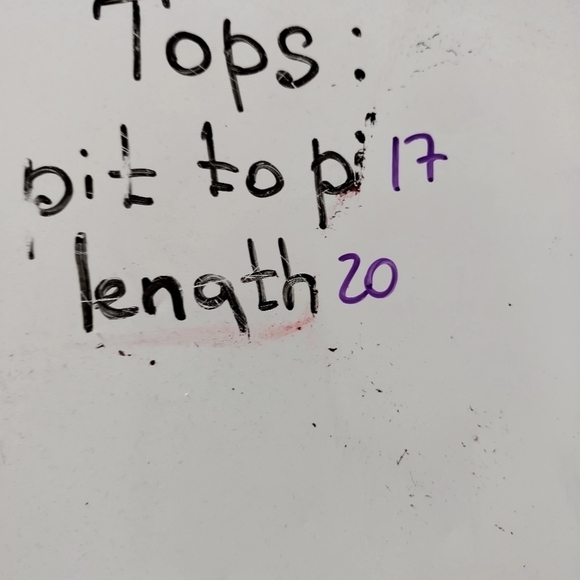 Tops:
pit to pi 17
length 20